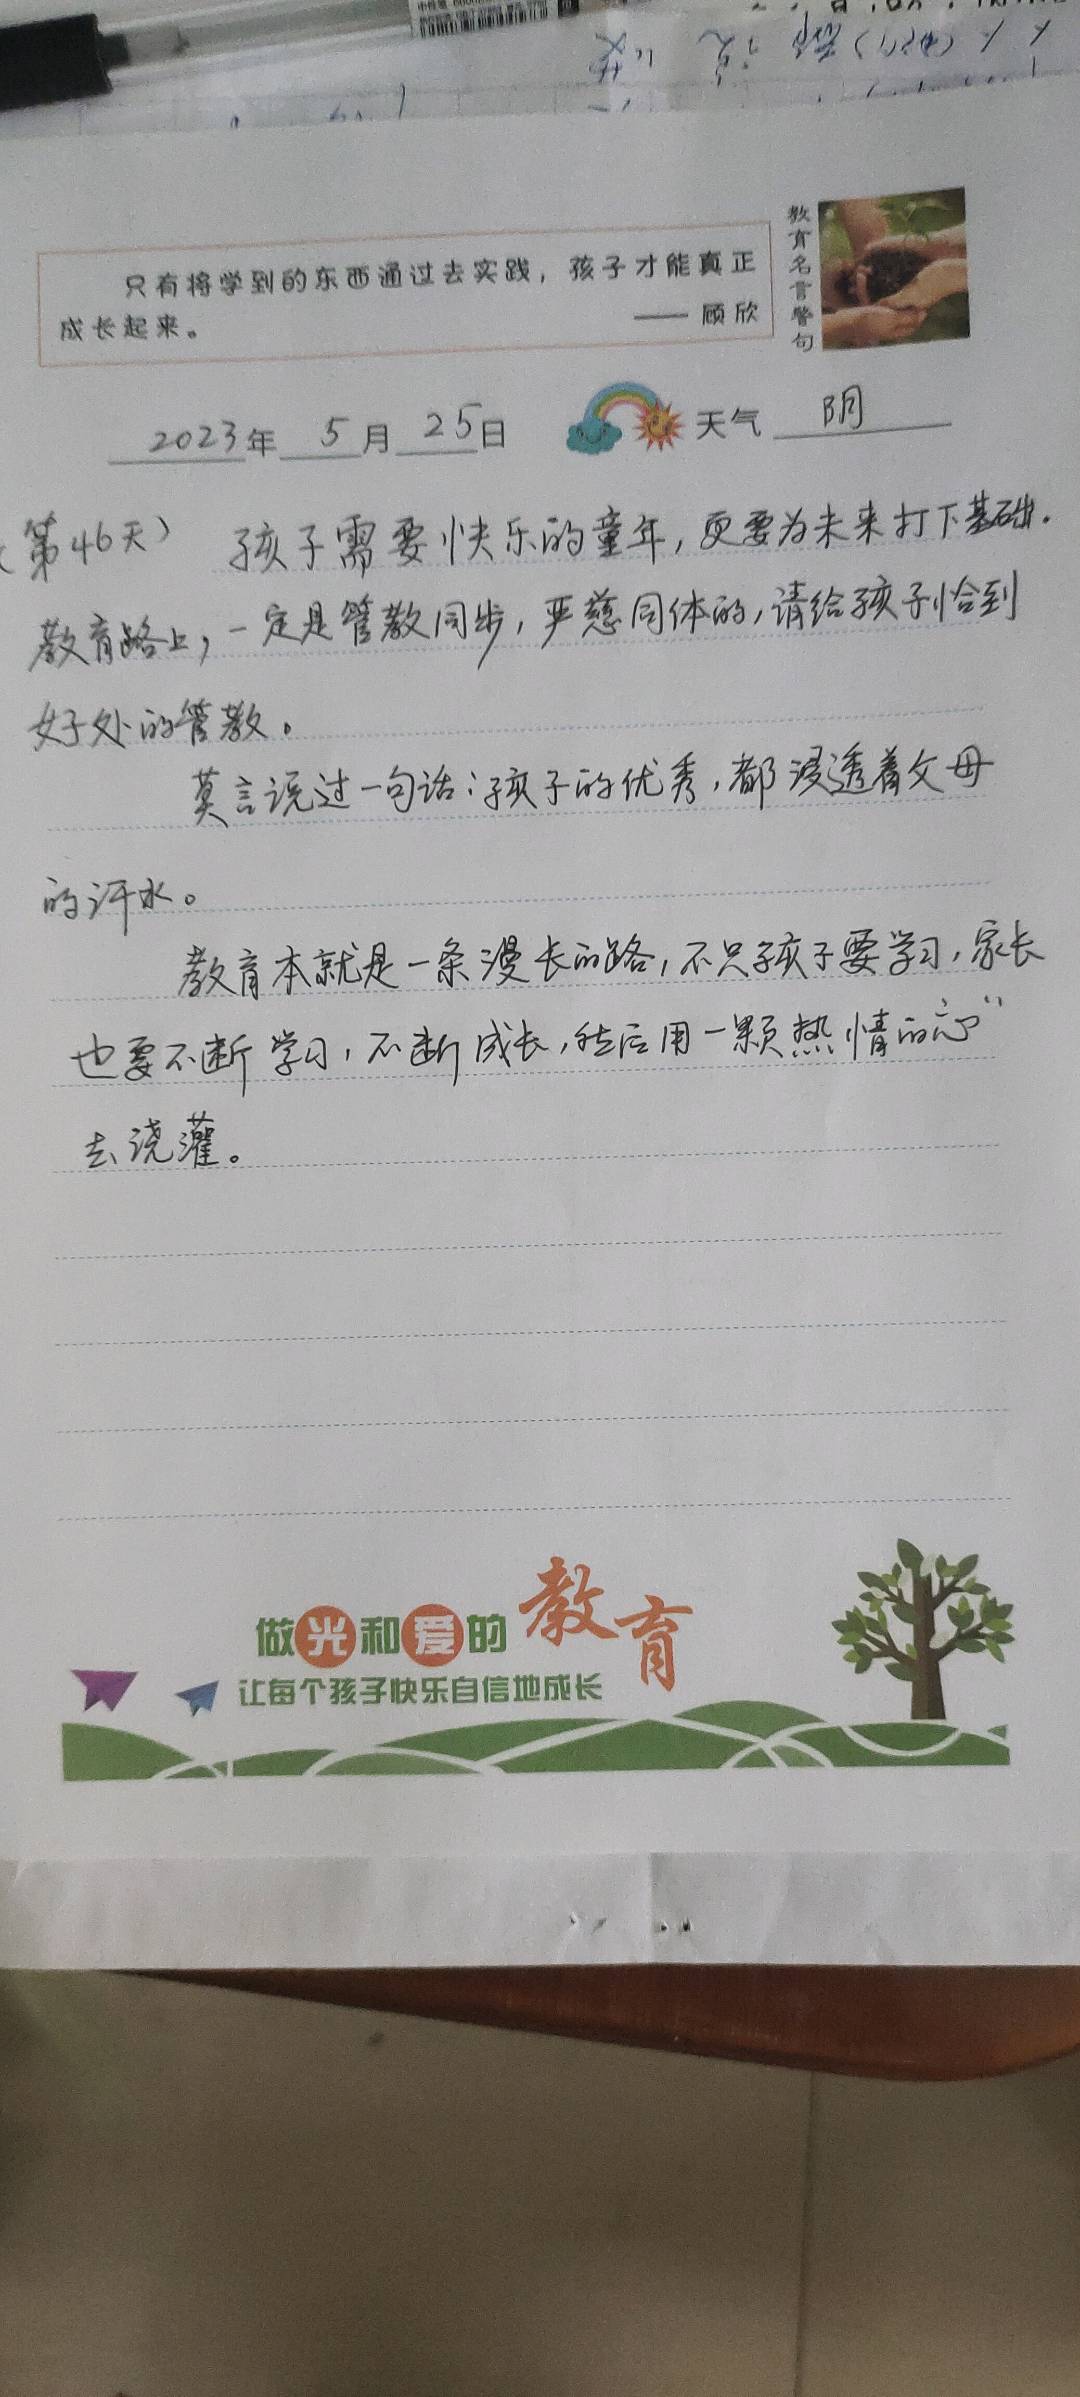 只有将学到的东西通过去实践，孩子才能真正
成长起来。
—— 顾欣
教育名言警句
2023年 5月 25日 天气 阴
（第46天） 孩子需要快乐的童年，更要为未来打下基础.
教育路上，一定是管教同步，严慈同体的，请给孩子恰到
好处的管教。
莫言说过一句话：孩子的优秀，都浸透着父母
的汗水。
教育本就是一条漫长的路，不只孩子要学习，家长
也要不断学习，不断成长，然后用一颗热情的心"
去浇灌。
做光和爱的教育
让每个孩子快乐自信地成长